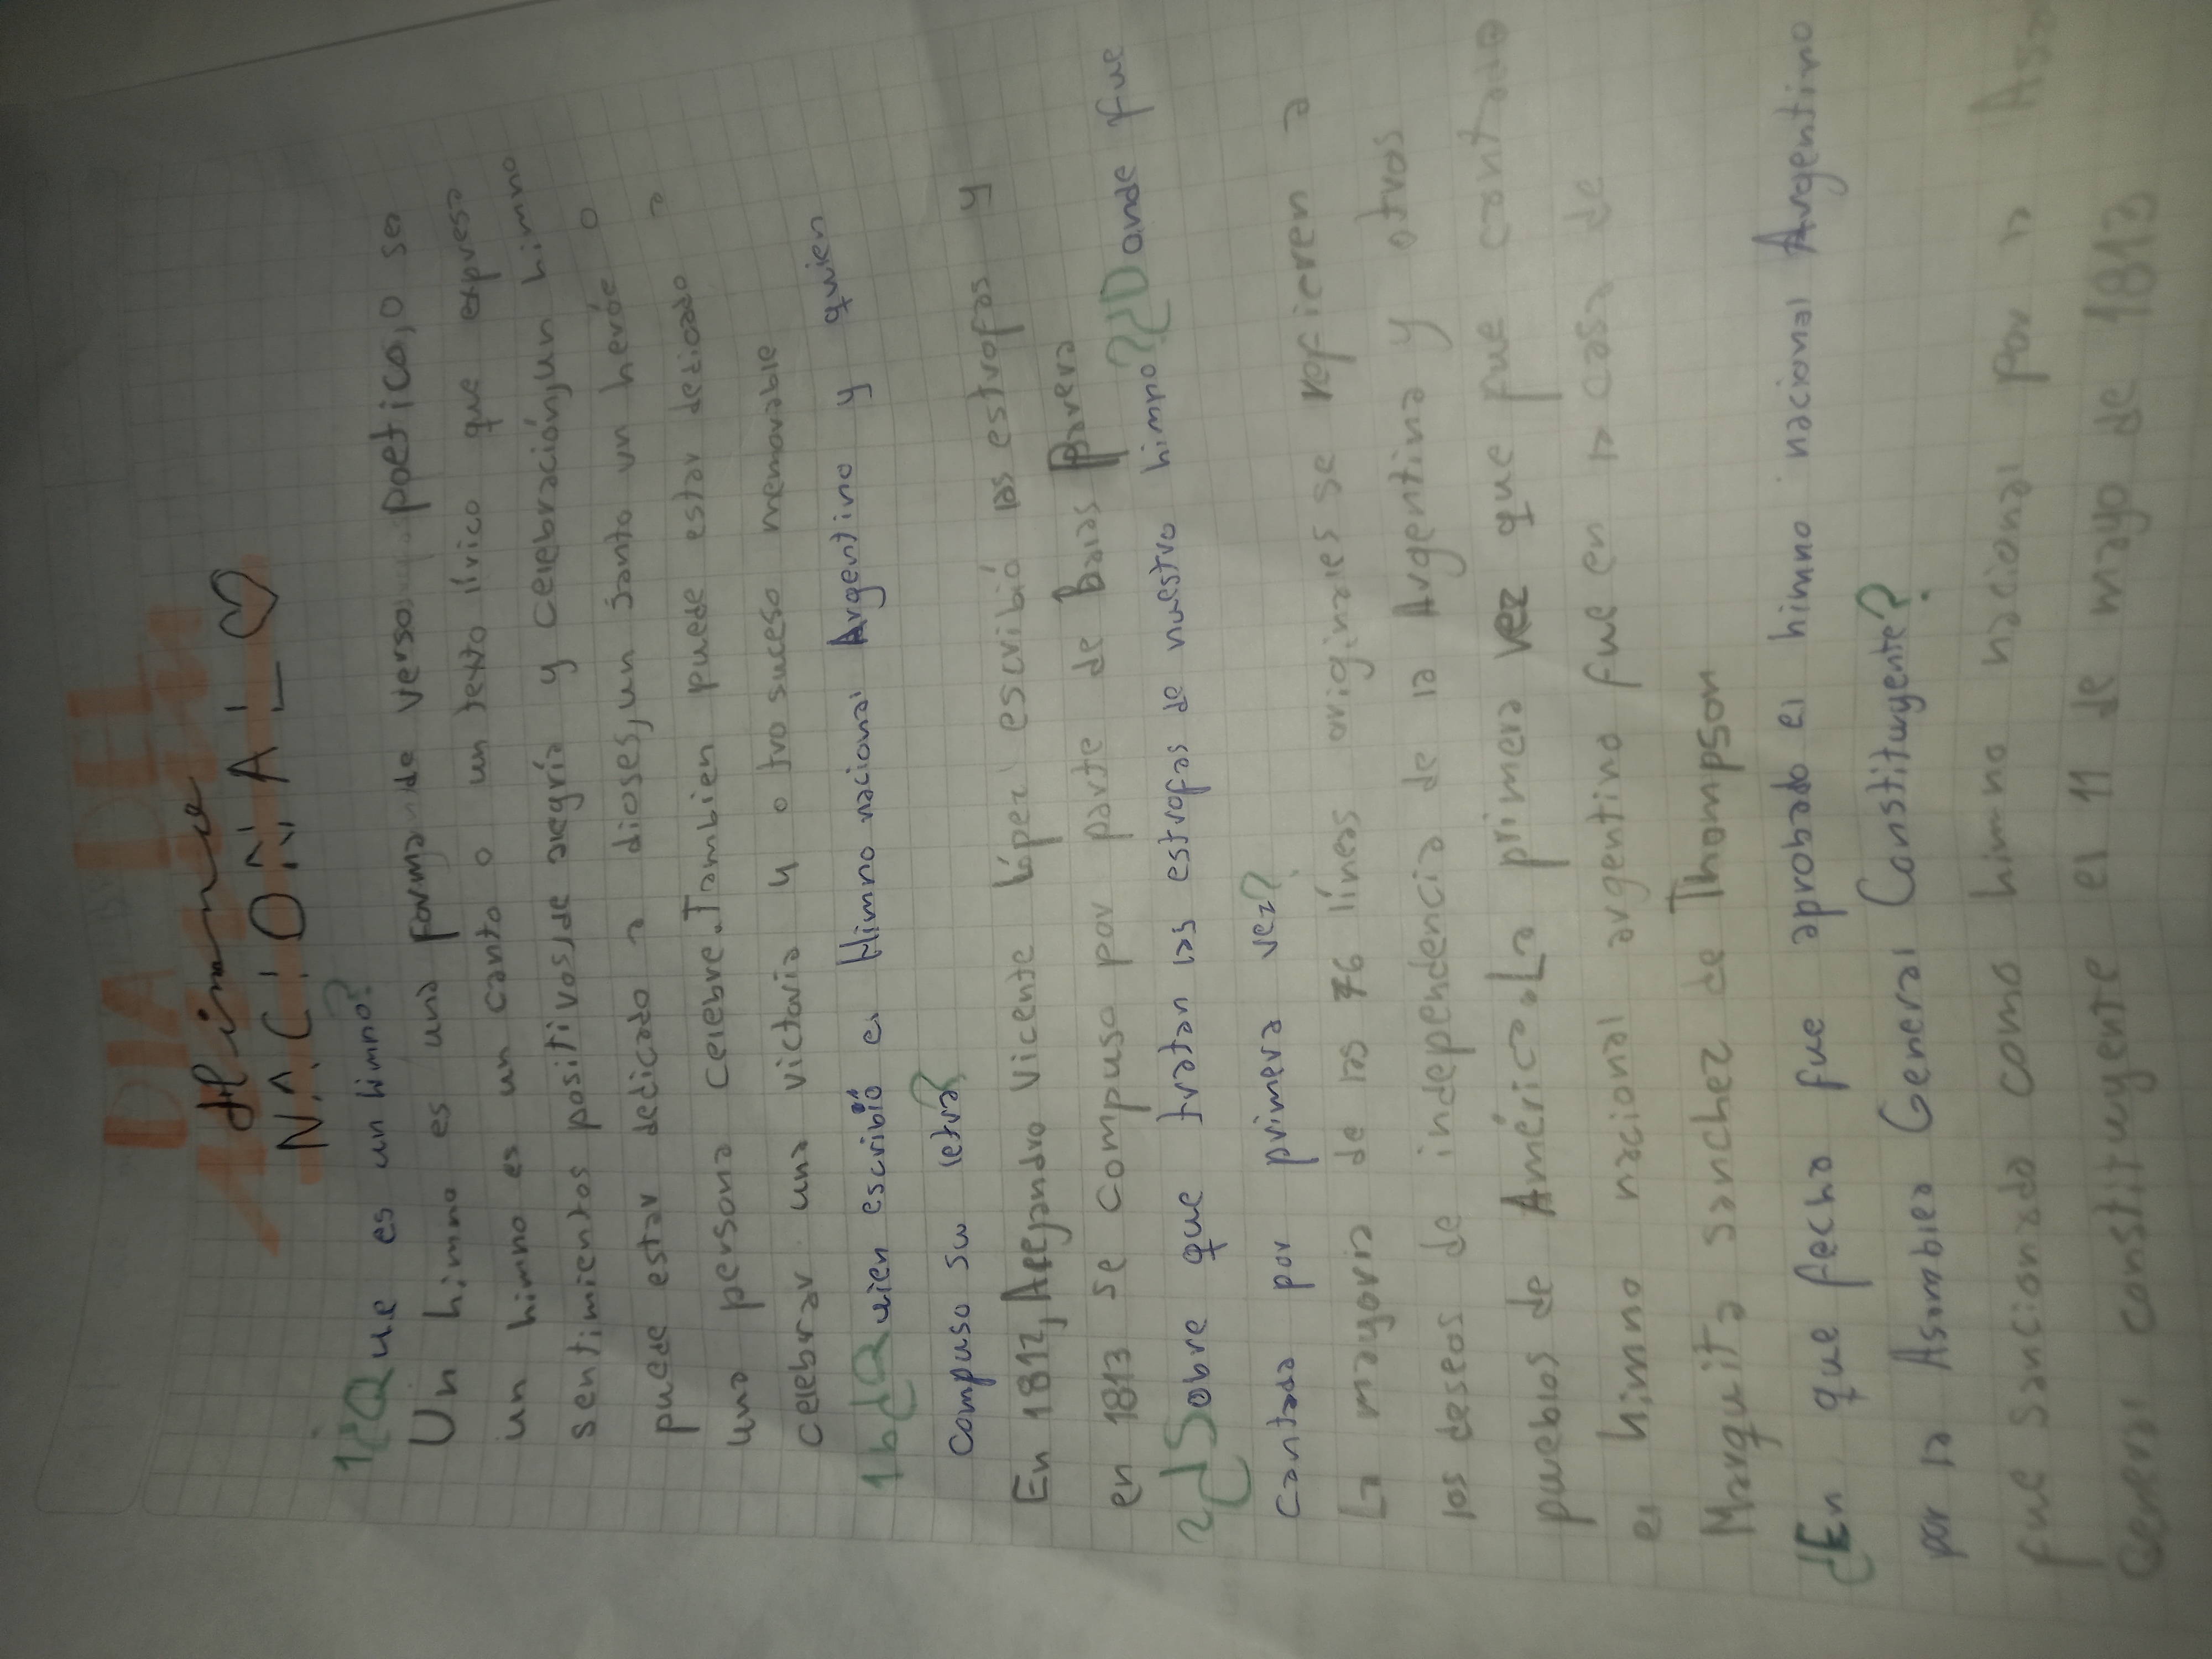 DIA DEL
Himno
NACIONAL
1¿Que es un himno?
Un himno es una forma de verso poetico, o sea
un himno es un canto o un texto lírico que expresa
sentimientos positivos, de alegría y celebración, un himno
puede estar dedicado a dioses, un santo un heróe o
una persona celebre. Tambien puede estar dedicado a
celebrar una victoria u otro suceso memorable
1b¿Quien escribió el Himno nacional Argentino y quien
compuso su letra?
En 1812, Alejandro Vicente lópez escribió las estrofas y
en 1813 se compuso por parte de Balas Parera
2¿Sobre que tratan las estrofas de nuestro himno?¿Donde fue
cantada por primera vez?
La mayoria de las 76 líneas originales se refieren a
los deseos de independencia de la Argentina y otros
pueblos de América. La primera vez que fue cantada
el himno nacional argentino fue en la casa de
Marquita sanchez de Thompson
¿En que fecha fue aprobado el himno nacional Argentino
por la Asamblea General Constituyente?
fue sancionado como himno nacional por la Asa
General constituyente el 11 de mayo de 1813